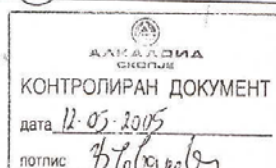 АЛКАЛОИД
СКОПЈЕ
КОНТРОЛИРАН ДОКУМЕНТ
дата 12-05-2005
потпис